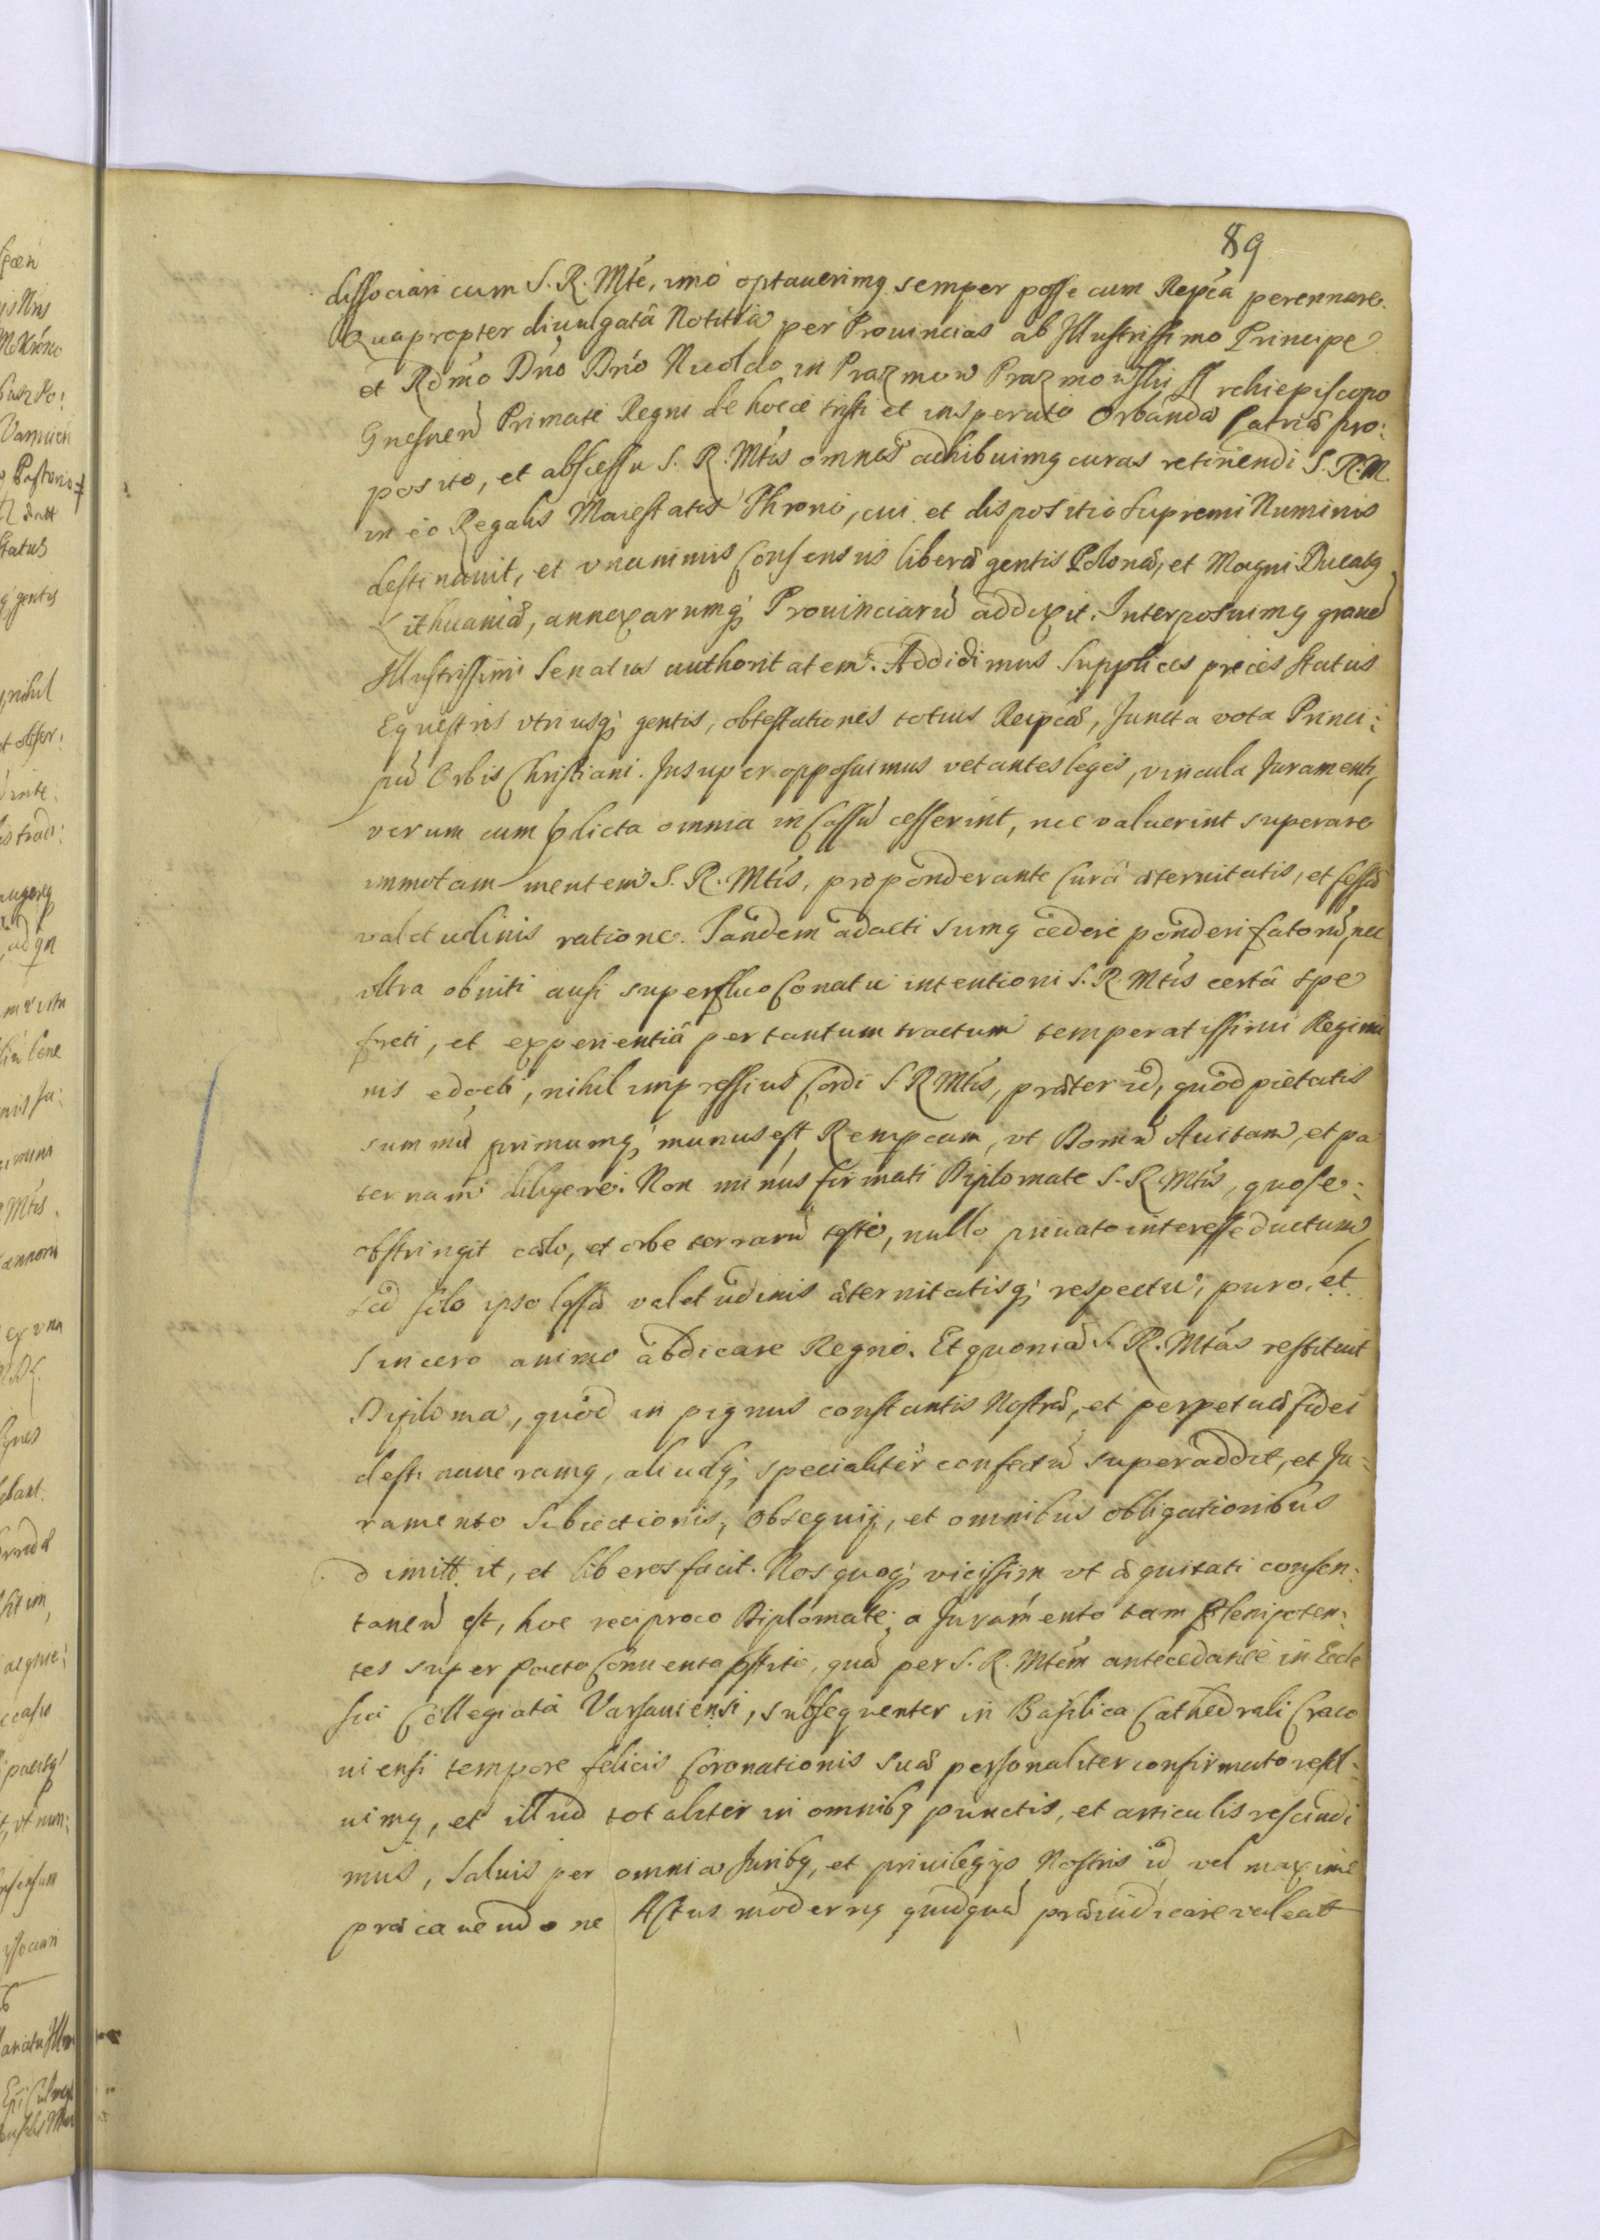 89
dissociari cum S. R. Mte, imò optauerimq semper posse cum Repca perennare.
Quapropter diuulgatâ Notitiâ per Prouincias ab Illustrissimo Principe
et Rdmo Dno Dno Nicolao in Prazmow Prazmowski Archiepiscopo
Gnesnen Primate Regni de hocce tristi et insperato Orbandæ Patriæ pro:
posito, et abscessu S. R. Mtis omnes adhibuimq curas retinendi S. R. M.
in eo Regalis Maiestatis Throno, cui et dispositio Supremi Numinis
destinauit, et vnanimis Consensus liberæ gentis Polonæ, et Magni Ducatq
Lithuaniæ, annexarumq; Prouinciarũ addixit. Interposuimq grauẽ
Illustrissimi Senatus authoritatem. Addidimus Supplices preces Status
Equestris vtriusq; gentis, obtestationes totius Reipcæ, Juncta vota Princi:
pũ Orbis Christiani. Insuper opposuimus vetantes leges, vincula Juramenti,
verum cum pdicta omnia in Cassũ cesserint, nec valuerint superare
immotam mentem S. R. Mtis, præponderante Curâ æternitatis, et fessæ
valetudinis ratione. Tandem adacti sumq cedere ponderi fatorũ, nec
vltra obniti ausi superfluo Conatu intentioni S. R. Mtis certâ spe
freti, et experientiâ per tantum tractum temperatissimi Regimi
nis edocti, nihil impressius Cordi S R Mtis, præter id, quòd pietatis
summũ primumq; munus est Rempcam, vt Domũ Auitam, et pa
ternam diligere. Non minus firmati Diplomate S. R. Mtis, quo se:
obstringit cælo, et orbe terrarũ teste, nullo priuato interesse ductum,
sed solo ipso lassæ valetudinis æternitatisq; respectu, puro, et
sincero animo abdicare Regno. Et quoniã S. R. Mtas restituit
Diploma, quòd in pignus constantis Nostræ, et perpetuæ fidei
destinaueramq, aliudq; specialiter confectũ superaddit, et Ju:
ramento Subiectionis, Obsequij, et omnibus obligationibus
dimittit, et liberos facit. Nos quoq; vicissim vt æquitati consen:
taneũ est, hoc reciproco Diplomate; a Juramento tam plenipoten:
tes super Pacta Conuenta pstito, quã per S. R. Mtem antecedanee in Eccle
sia Collegiata Varsauiensi, subsequenter in Basilica Cathedrali Craco
uiensi tempore felicis Coronationis suæ personaliter confirmato resol:
uimq, et illud totaliter in omnibq punctis, et articulis rescindi
mus, Saluis per omnia Juribq, et priuilegijs Nostris id vel maxime
præcauendo ne Actus modernq quidquã præiudicare valeat